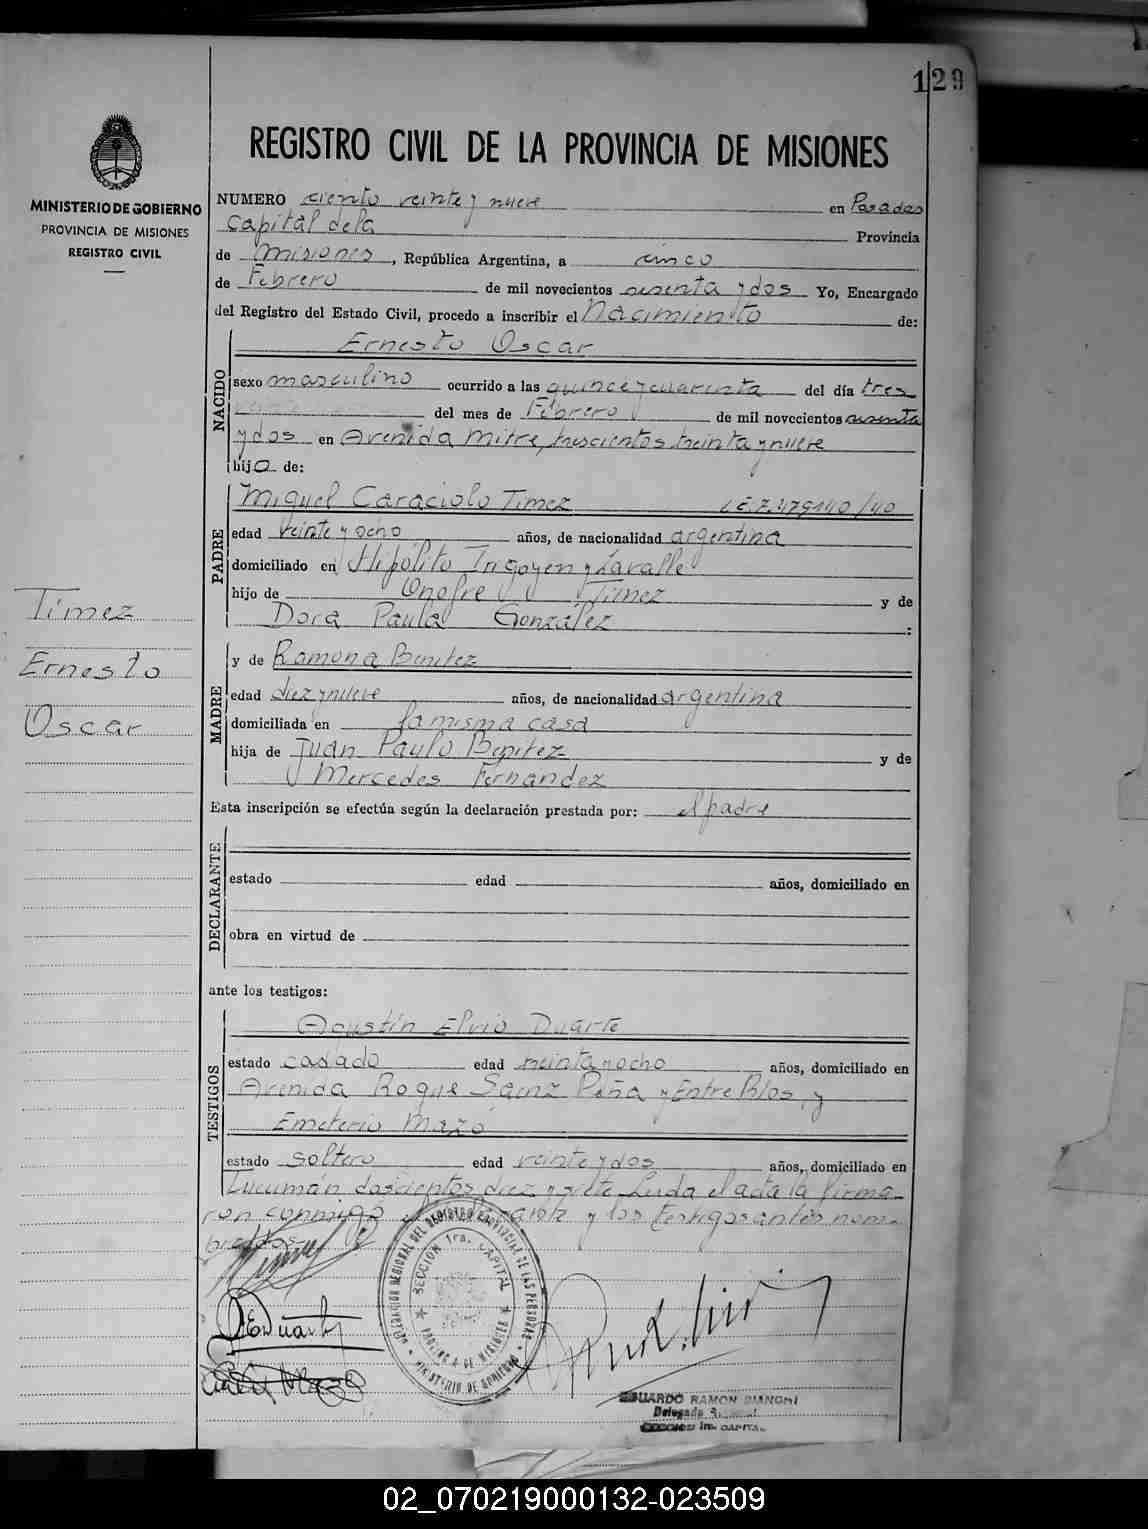 129
REGISTRO CIVIL DE LA PROVINCIA DE MISIONES
MINISTERIO DE GOBIERNO
PROVINCIA DE MISIONES
REGISTRO CIVIL
NUMERO ciento veinte y nueve en Posadas
Capital de la Provincia
de Misiones, República Argentina, a cinco
de Febrero de mil novecientos sesenta y dos Yo, Encargado
del Registro del Estado Civil, procedo a inscribir el Nacimiento de:
NACIDO
Ernesto Oscar
sexo masculino ocurrido a las quince y cuarenta del día tres
del mes de Febrero de mil novecientos sesenta
y dos en Avenida Mitre, trescientos treinta y nueve
hijo de:
PADRE
Miguel Caraciolo Timez
edad veinte y ocho años, de nacionalidad argentina
domiciliado en Hipólito Irigoyen y Lavalle
hijo de Onofre Timez y de
Dora Paula González :
Timez
Ernesto
Oscar
MADRE
y de Ramona Benitez
edad diez y nueve años, de nacionalidad argentina
domiciliada en la misma casa
hija de Juan Paulo Benitez y de
Mercedes Fernandez
Esta inscripción se efectúa según la declaración prestada por: el padre
DECLARANTE
estado edad años, domiciliado en
obra en virtud de
ante los testigos:
TESTIGOS
Agustín Elvio Duarte
estado casado edad treinta y ocho años, domiciliado en
Avenida Roque Saenz Peña y Entre Rios, y
Emeterio Mazó
estado soltero edad veinte y dos años, domiciliado en
Tucumán doscientos diez y siete Leida el acta la firma-
ron conmigo el y los testigos antes nom-
brados
DELEGACION REGIONAL DEL REGISTRO PROVINCIAL DE LAS PERSONAS
SECCION 1ra. CAPITAL
PROVINCIA DE MISIONES
MINISTERIO DE GOBIERNO
Timez
AEDuarte
EDUARDO RAMON BIANCHI
Delegado
SECCION 1ra. CAPITAL
02_070219000132-023509